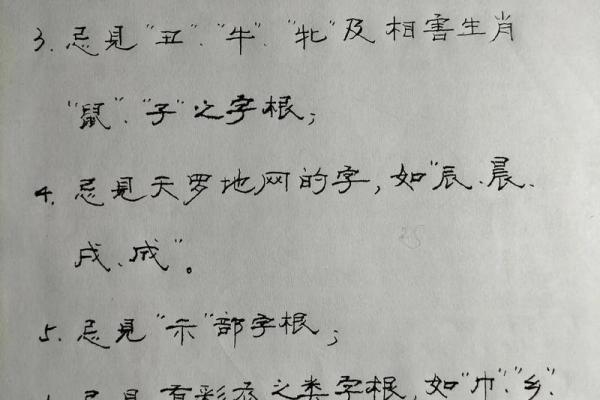 3. 忌見"丑"、"牛"、"牝"及相害生肖
"鼠"、"子"之字根;
4. 忌見天罗地网的字,如"辰、晨、
戌、成"。
5. 忌見"示"部字根;
忌見有彩衣之类字根,如"巾"、"纟"、